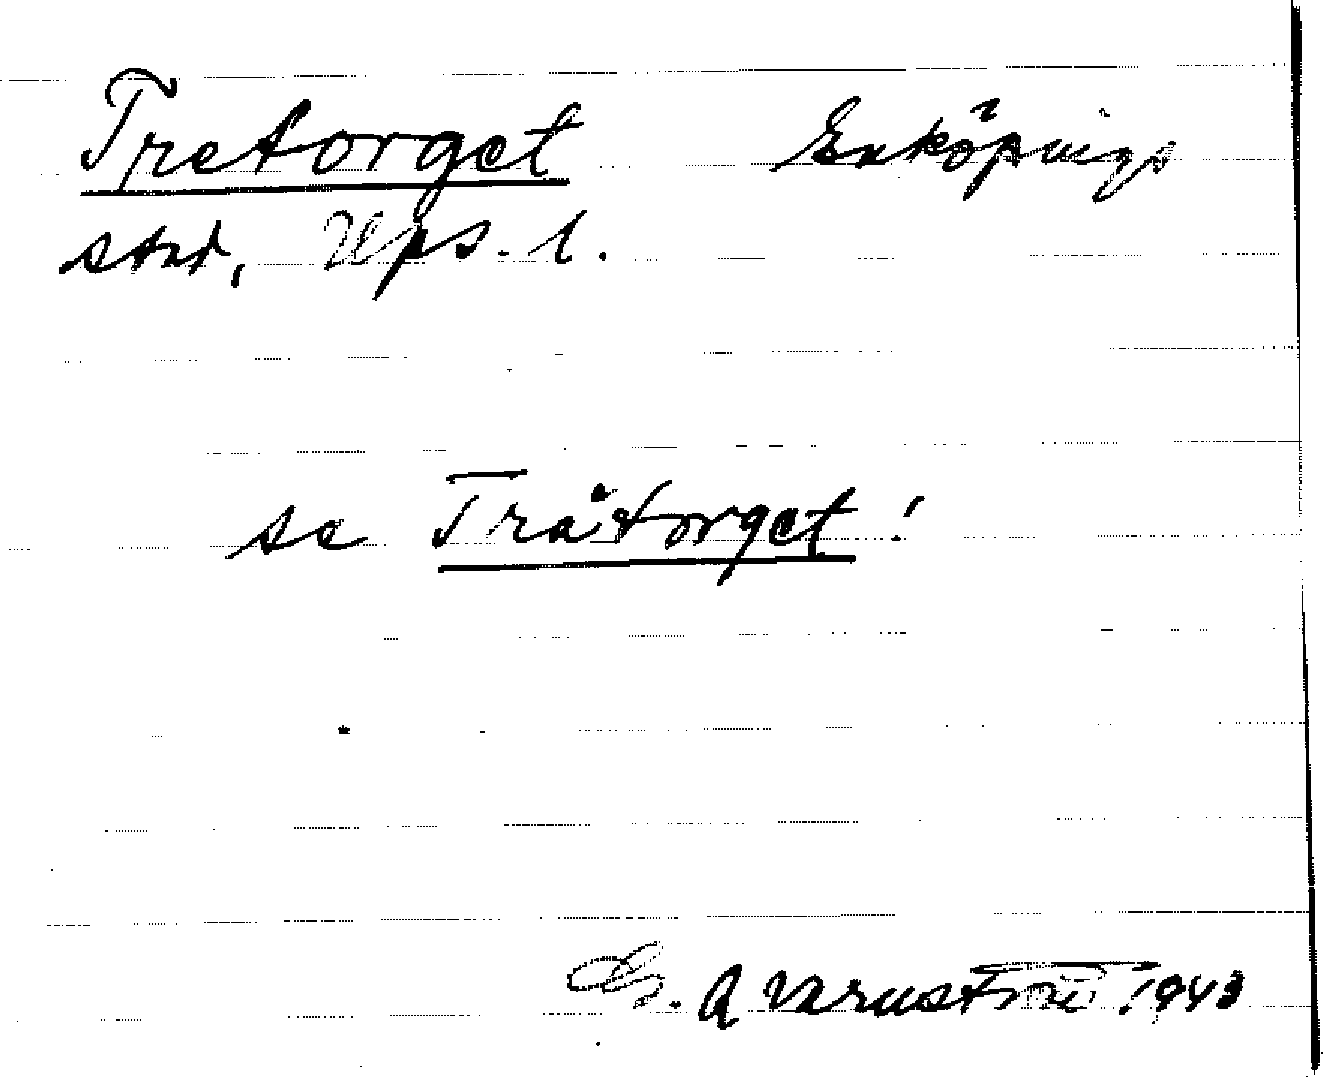 Tretorget Enköpings
stad, Ups. l.
se Trätorget!
A Varnström 1943